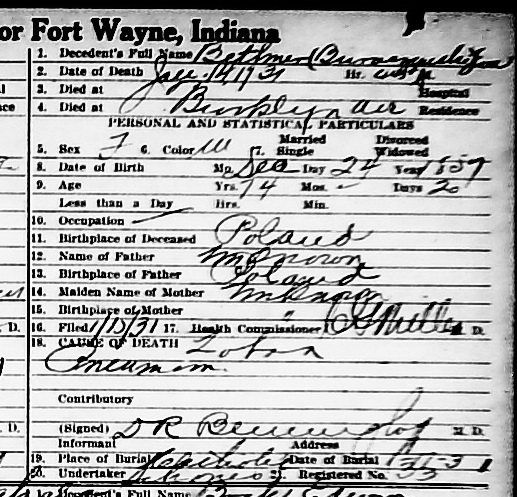 or Fort Wayne, Indiana
1. Decedent's Full Name
2. Date of Death Jan. 14 1931 Hr. M
3. Died at Hospital
4. Died at Brooklyn Ave Residence
PERSONAL AND STATISTICAL PARTICULARS
Married Divorced
5. Sex F 6. Color W 7. Single Widowed
8. Date of Birth Mo. Dec Day 24 Year
9. Age Yrs. 74 Mos. - Days 20
Less than a Day Hrs. Min.
10. Occupation
11. Birthplace of Deceased Poland
12. Name of Father Unknown
13. Birthplace of Father Poland
14. Maiden Name of Mother Unknown
15. Birthplace of Mother "
D. 16. Filed 1/15/31 17. Health Commissioner Miller M. D.
18. CAUSE OF DEATH Lobar
Pneumonia
Contributory
D. (Signed) DR M. D.
Informant Address
19. Place of Burial Catholic Date of Burial
20. Undertaker 21. Registered No.
1. Decedent's Full Name